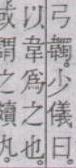 弓韣少儀曰
以韋爲之也
或謂之䪅丸